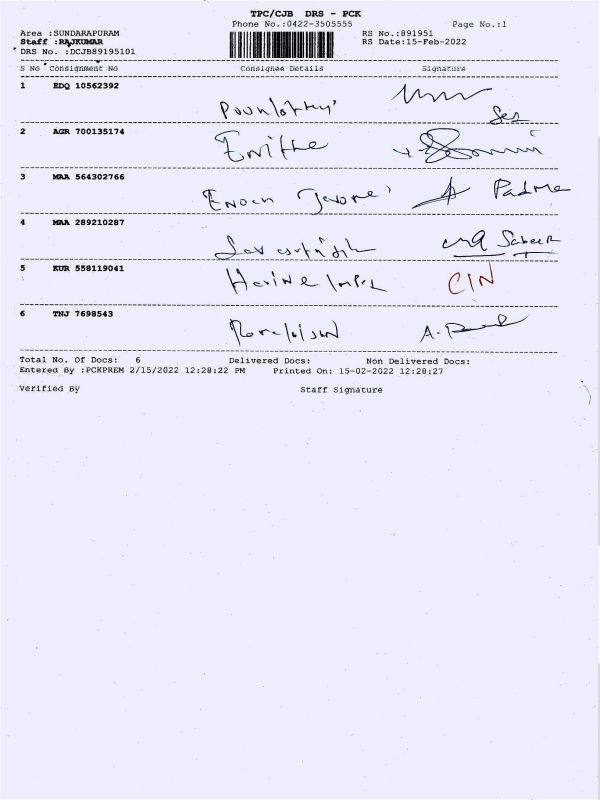 TPC/CJB DRS - PCK
Phone No.:0422-3505555 Page No.:1
Area :SUNDARAPURAM RS No.:891951
Staff :RAJKUMAR RS Date:15-Feb-2022
DRS No. :DCJB89195101
S No Consignment No Consignee Details Signature
1 EDQ 10562392
2 AGR 700135174
3 MAA 564302766 Padma
4 MAA 289210287
5 KUR 558119041 CIN
6 TNJ 7698543
Total No. Of Docs: 6 Delivered Docs: Non Delivered Docs:
Entered By :PCKPREM 2/15/2022 12:28:22 PM Printed On: 15-02-2022 12:28:27
Verified By Staff Signature